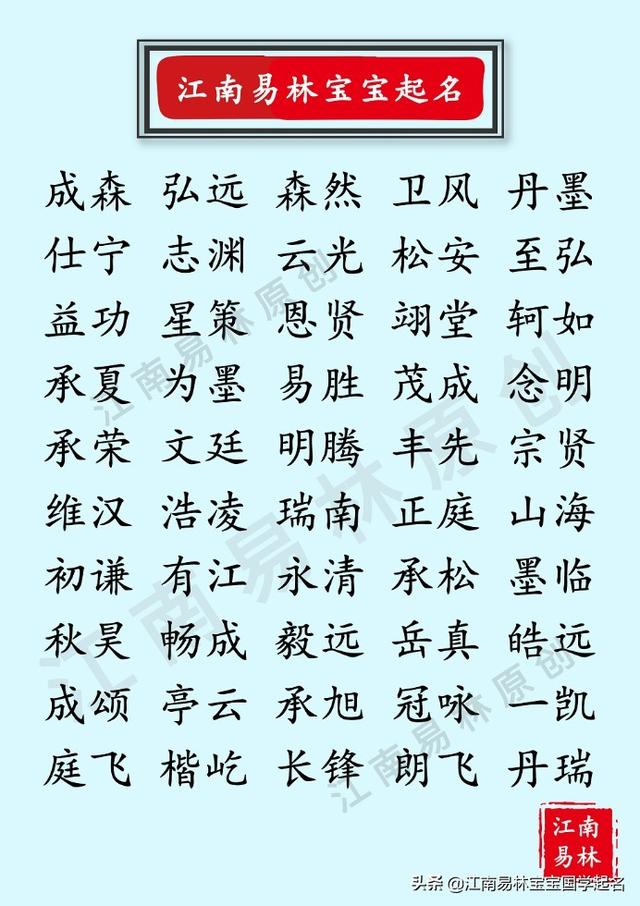 江南易林宝宝起名
成森 弘远 森然 卫风 丹墨
仕宁 志渊 云光 松安 至弘
益功 星策 恩贤 翊堂 轲如
承夏 为墨 易胜 茂成 念明
承荣 文廷 明腾 丰先 宗贤
维汉 浩凌 瑞南 正庭 山海
初谦 有江 永清 承松 墨临
秋昊 畅成 毅远 岳真 皓远
成颂 亭云 承旭 冠咏 一凯
庭飞 楷屹 长锋 朗飞 丹瑞
江南易林原创
江南易林原创
江南易林原创
江南
易林
头条 @江南易林宝宝国学起名